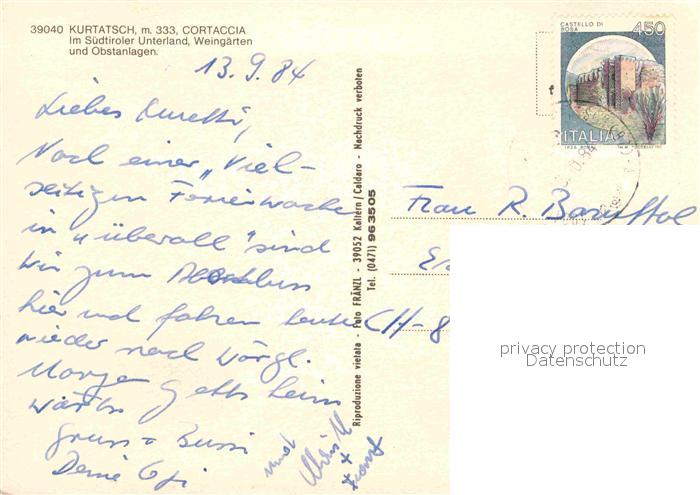 39040 KURTATSCH, m. 333, CORTACCIA
Im Südtiroler Unterland, Weingärten
und Obstanlagen.
13.9.84
Liebes
Nach einer „Viel-
seitigen Ferienwoche
in "überall" sind
wir zum
hier und fahren heute
wieder nach Wörgl.
Morgen gehts heim
wärts
Gruss + Bussi
Deine
und
Riproduzione vietata - Foto FRÄNZL - 39052 Kaltern/Caldaro - Nachdruck verboten
Tel. (0471) 963505
CASTELLO DI
ROSA
450
ITALIA
Frau R.
CH-8
privacy protection
Datenschutz